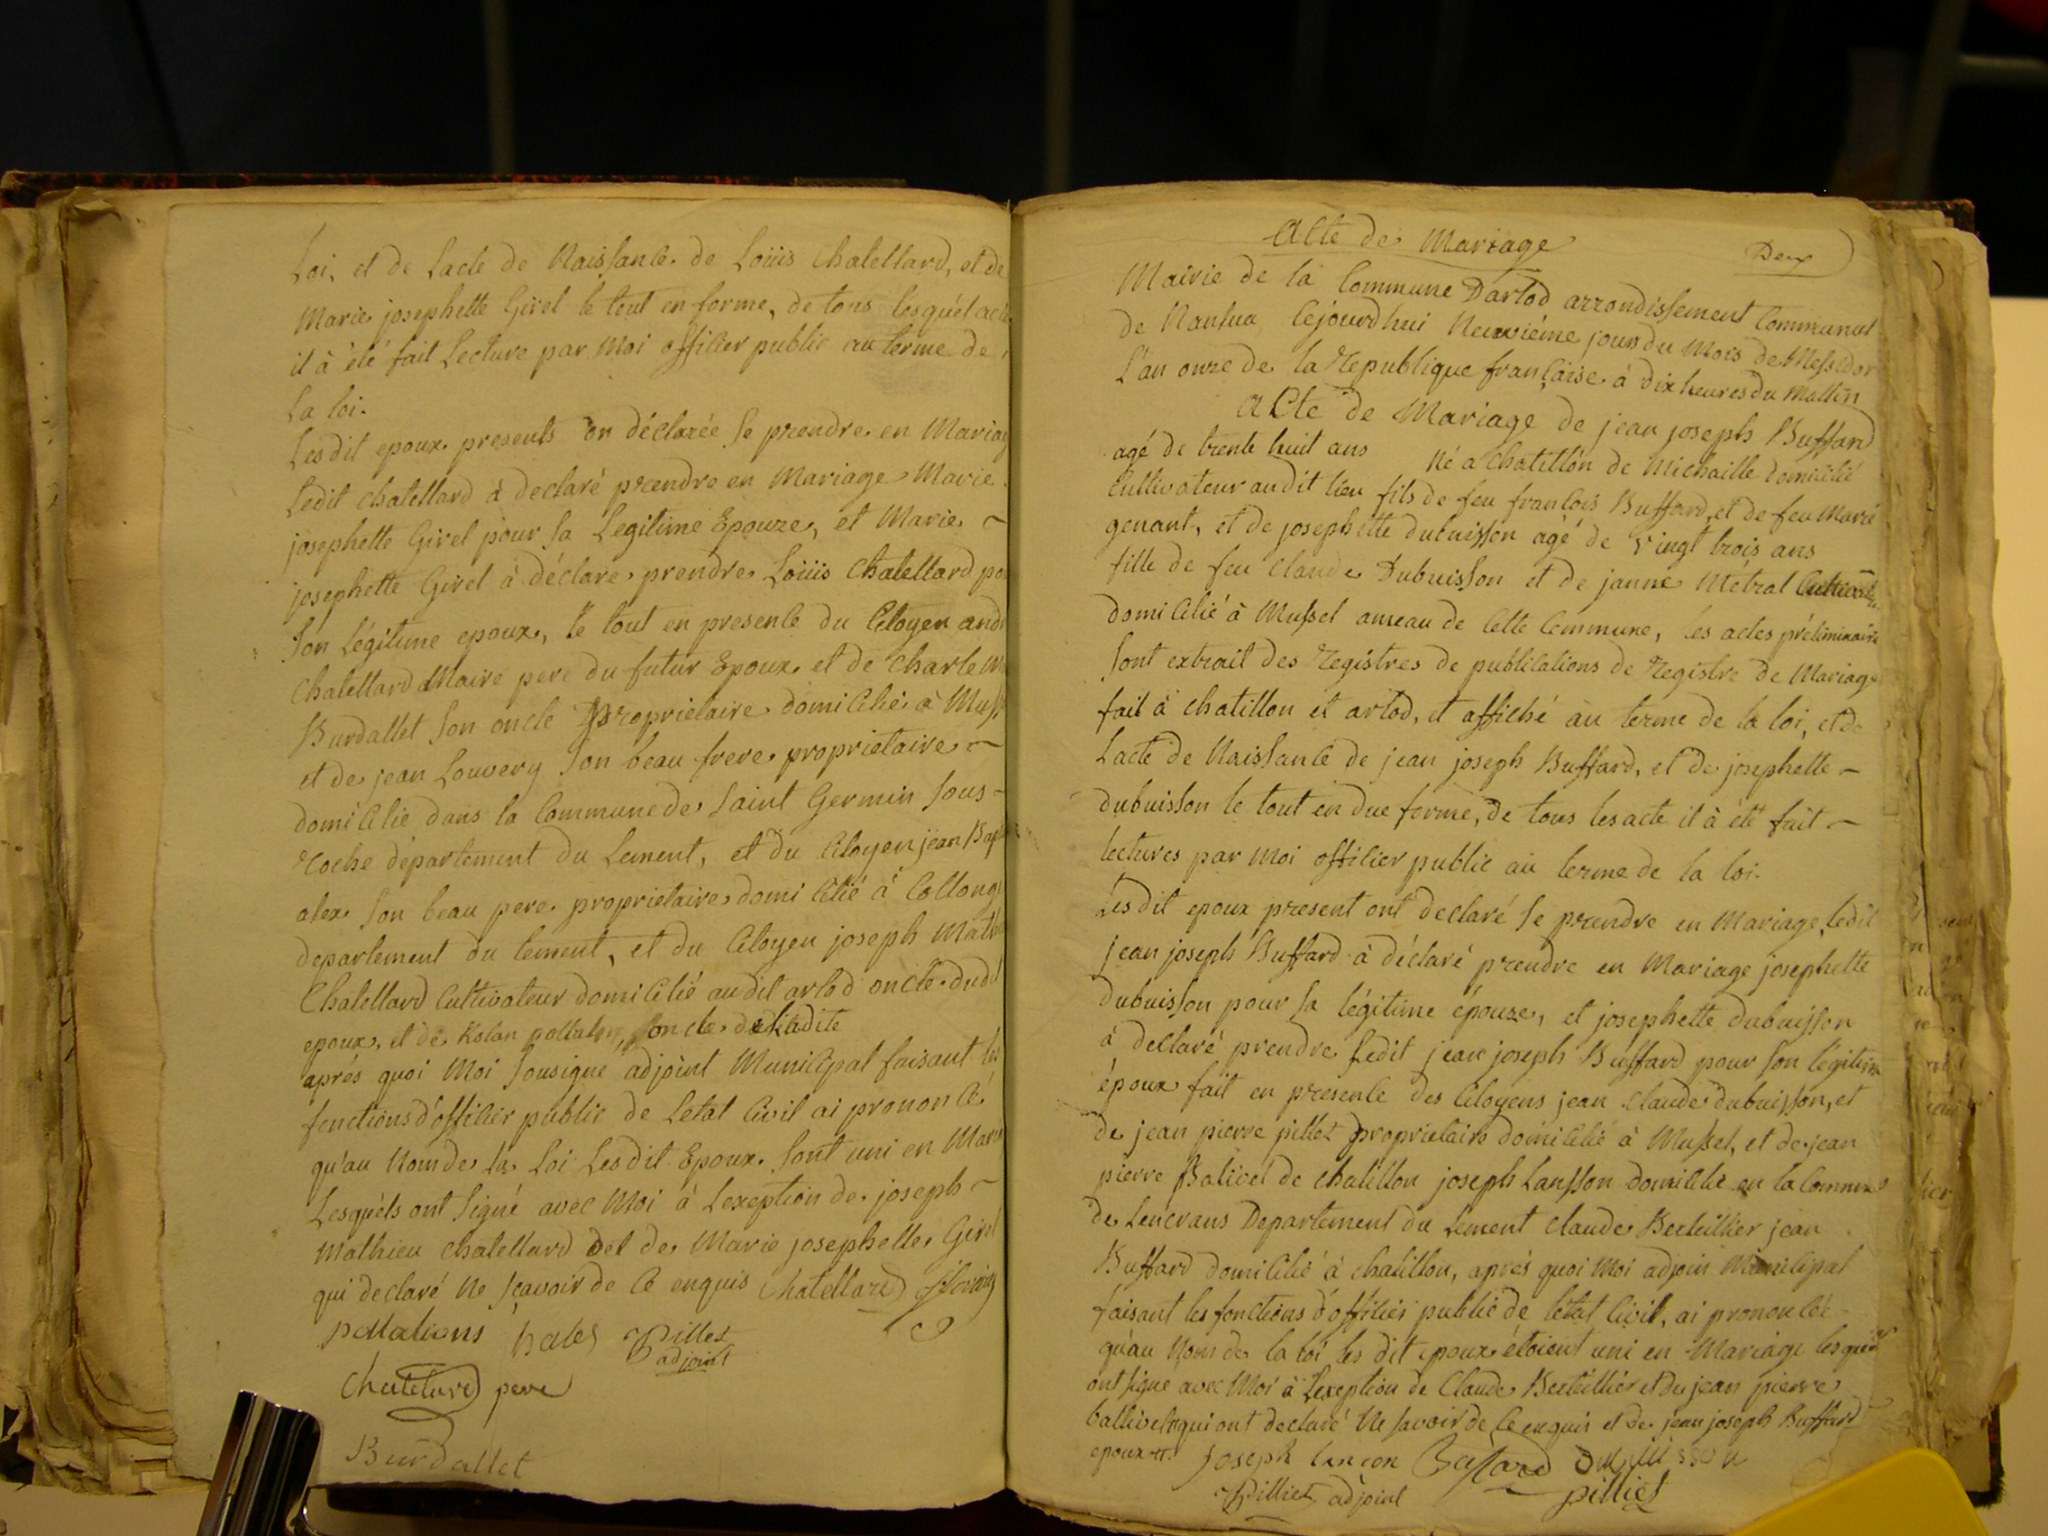 Loi, et de Lacte de Naissance de Loüis Chatellard, et de
Marie josephette Girel le tout en forme, de tous lesquel acte
il à été fait Lecture par Moi officier public au terme de
La loi.
Lesdit epoux presents on déclarée se prendre en Mariag
Ledit chatellard à declaré prendre en Mariage Marie
josephette Girel pour sa Legitime Epouze, et Marie
josephette Girel à déclaré prendre Loüis Chatellard po
son légitime epoux, le tout en presence du Citoyen and
Chatellard Maire pere du futur Epoux et de Charle
Burdallet son oncle proprietaire domicilié à Muss
et de jean Louvery son beau frere proprietaire
domicilié dans la Commune de Saint Germin sous
roche departement du Lement, et du Citoyen jean Bap
alex son beau pere proprietaire domicilié à Collong
departement du lement, et du Citoyen joseph Math
Chatellard Cultivateur domicilié audit arlod oncle dud
epoux, et de oncle de ladite
aprés quoi Moi sousigné adjoint Municipal faisant les
fonctions d'officier public de Letat Civil ai prononcé
qu'au Nom de La Loi Lesdit Epoux sont uni en Mar
Lesquéls ont signé avec Moi à Lexeption de joseph
Mathieu chatellard det de Marie josephette Girel
qui declaré Ne sçavoir de ce enquis Chatellard
Pillet
adjoint
Chatelard pere
Burdallet
Acte de Mariage
Deux
Mairie de la Commune Darlod arrondissement Communal
de Nantua Cejourd'hui Neuviéme jour du Mois de Messidor
L'an onze de la Republique française à dix heures du Mattin
Acte de Mariage de jean joseph Buffard
agé de trente huit ans Né a Chatillon de Michaille domicilié
Cultivateur audit lieu fils de feu françois Buffard, et de feu Marie
genant, et de josephette dubuisson agé de vingt trois ans
fille de feu Claude Dubuisson et de janne Métral
domicilié à Mussel ameau de Cette Commune, les actes préliminaire
sont extrait des Registres de publications de Registre de Mariage
fait à chatillon et arlod, et affiché au terme de la loi, et de
Lacte de Naissance de jean joseph Buffard, et de josephette
dubuisson le tout en due forme, de tous les acte il à été fait
lectures par Moi officier public au terme de la loi.
Lesdit epoux present ont declaré se prendre en Mariage, ledit
jean joseph Buffard à déclaré prendre en Mariage josephette
dubuisson pour sa légitime épouze, et josephette dubuisson
à declaré prendre Ledit jean joseph Buffard pour son légitime
époux fait en presence des Citoyens jean Claude dubuisson, et
de jean pierre pillet proprietaire domicilié à Mussel, et de jean
pierre Balicet de chatillon joseph Lansson domicilié en la Commune
de Lencrans Departement du Lement Claude Berteillier jean
Buffard domicilié à chatillon, aprés quoi Moi adjoin Municipal
faisant les fonctions d'officier public de létat Civil, ai prononcée
qu'au Nom de la loi les dit epoux étoient uni en Mariage lesquels
ont signé avec Moi à Lexeption de Claude Berteillier et du jean pierre
qui ont declaré Ne savoir de ce enquis et de jean joseph Buffard
epoux joseph lancon Bufard dubuisson
Pilliet adjoint pilliet